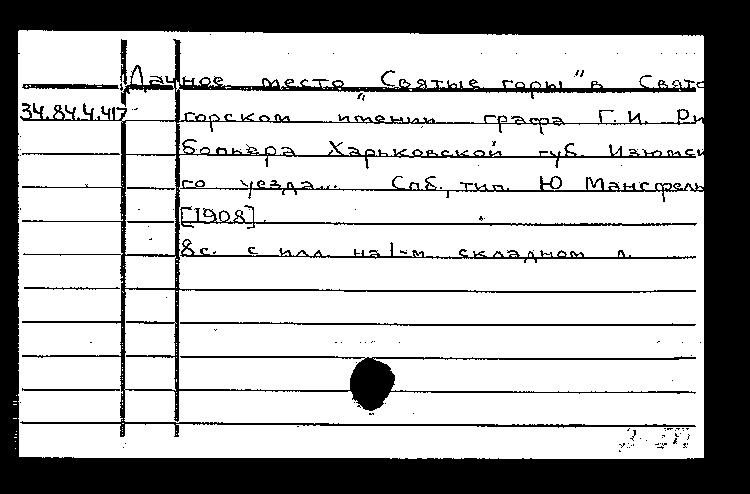 Дачное место "Святые горы" в Свято
34.84.4.417 горском имении графа Г. И. Ри
бопьера Харьковской губ. Изюмск
го уезда... Спб., тип. Ю Мансфель
[1908].
8с. с илл. на 1-м складном л.